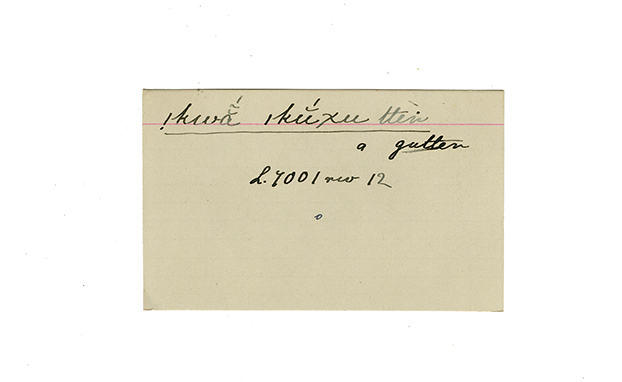 ǃkwã́ ǀkúxu ttẹ̀n
a gutter
L. 7001 rev 12